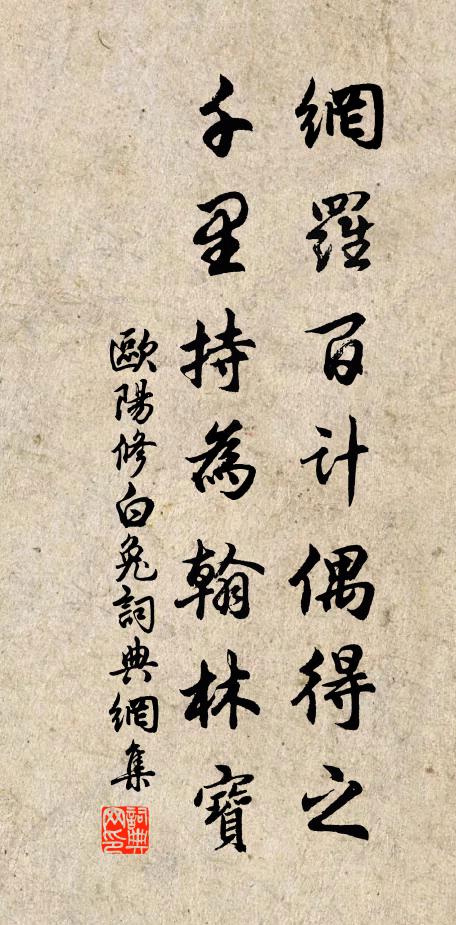 網羅百計偶得之
千里持為翰林寶
歐陽修白兔詞典網集
詞典網印